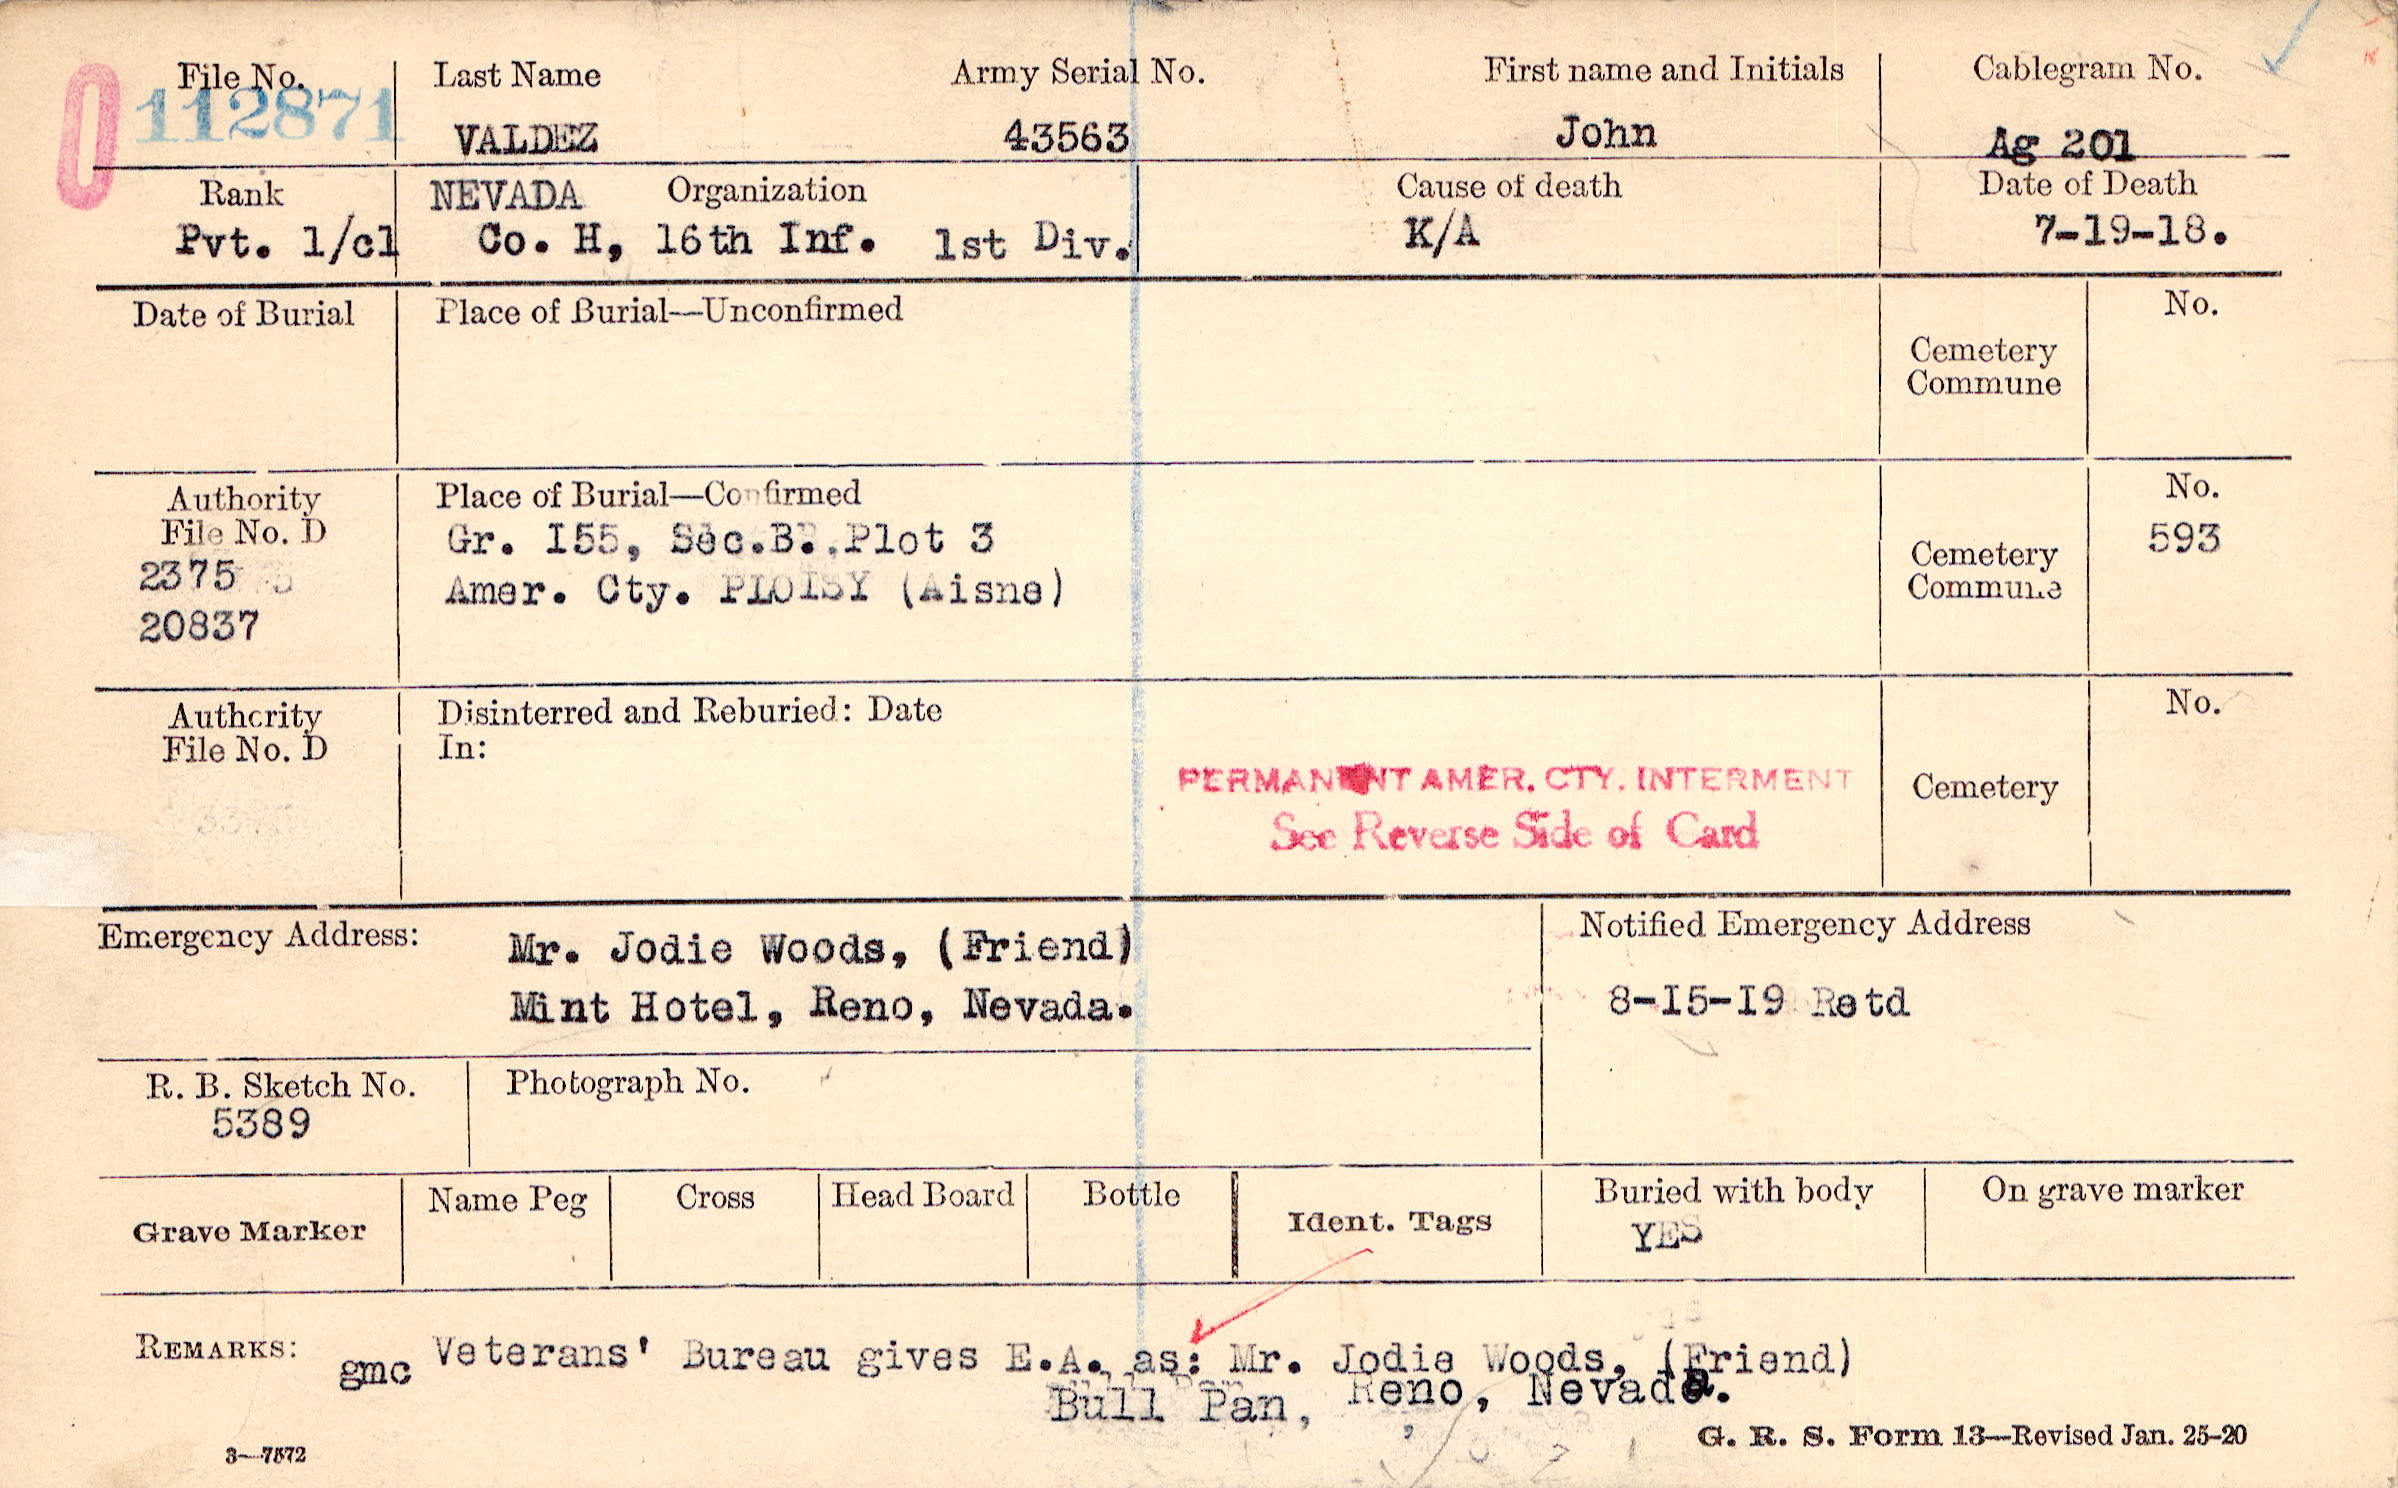 File No. Last Name Army Serial No. First name and Initials Cablegram No.
0 112871 VALDEZ 43563 John Ag 201
Rank NEVADA Organization Cause of death Date of Death
Pvt. 1/cl Co. H, 16th Inf. 1st Div. K/A 7-19-18.
Date of Burial Place of Burial—Unconfirmed No.
Cemetery
Commune
Authority Place of Burial—Confirmed No.
File No. D Gr. I55, Sec.B. Plot 3 593
2375 Amer. Cty. PLOISY (Aisne) Cemetery
20837 Commune
Authority Disinterred and Reburied: Date No.
File No. D In:
PERMANENT AMER. CTY. INTERMENT Cemetery
See Reverse Side of Card
Emergency Address: Mr. Jodie Woods, (Friend) Notified Emergency Address
Mint Hotel, Reno, Nevada. 8-15-19 Retd
R. B. Sketch No. Photograph No.
5389
Grave Marker Name Peg Cross Head Board Bottle Ident. Tags Buried with body On grave marker
YES
REMARKS: gmc Veterans' Bureau gives E.A. as: Mr. Jodie Woods, (Friend)
Bull Pan, Reno, Nevada.
3—7572 G. R. S. Form 13—Revised Jan. 25-20